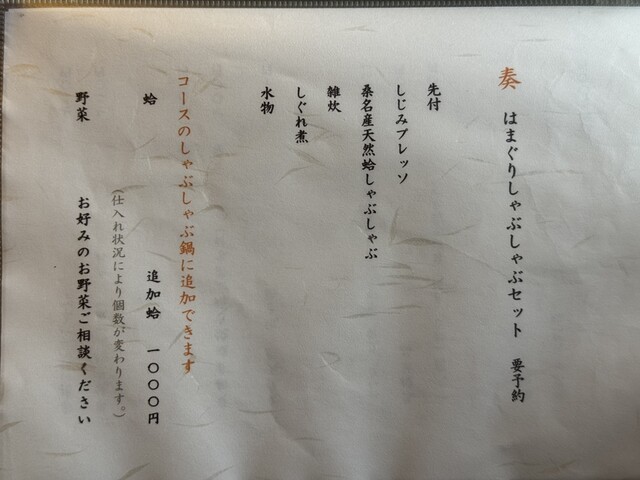 奏　はまぐりしゃぶしゃぶセット　要予約
先付
しじみブレッソ
桑名産天然蛤しゃぶしゃぶ
雑炊
しぐれ煮
水物
コースのしゃぶしゃぶ鍋に追加できます
蛤　追加蛤　一〇〇〇円
（仕入れ状況により個数が変わります。）
野菜　お好みのお野菜ご相談ください